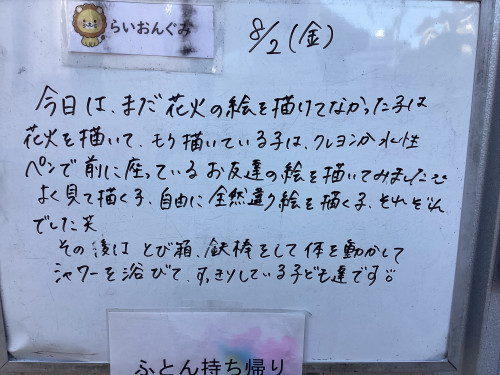 らいおんぐみ
8/2(金)
今日は、まだ花火の絵を描けてなかった子は
花火を描いて、もう描いている子は、クレヨンか水性
ペンで前に座っているお友達の絵を描いてみました
よく見て描く子、自由に全然違う絵を描く子、それぞれ
でした笑
その後は とび箱、鉄棒をして体を動かして
シャワーを浴びて、すっきりしている子ども達です。
ふとん持ち帰り